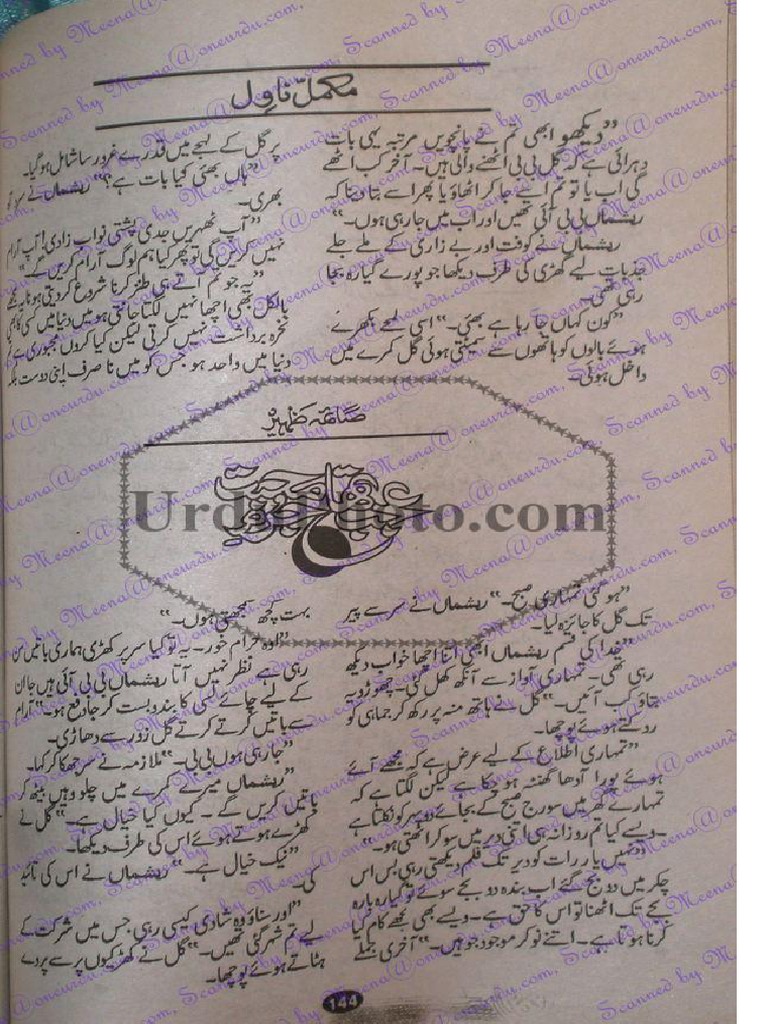 مکمل ناول
"دیکھو ابھی تم نے پانچویں مرتبہ یہی بات
دہرائی ہے کہ گل بی بی اٹھنے والی ہیں۔ آخر کب اٹھے
گی اب یا تو تم اسے جا کر اٹھاؤ یا پھر اسے بتا دینا کہ
ریشماں بی بی آئی تھیں اور اب میں جا رہی ہوں۔"
ریشماں نے کوفت اور بے زاری کے ملے جلے
جذبات لیے گھڑی کی طرف دیکھا جو پورے گیارہ بجا
رہی تھی۔
"کون کہاں جا رہا ہے بھئی۔" اسی لمحے بکھرے
ہوئے بالوں کو ہاتھوں سے سمیٹتی ہوئی گل کمرے میں
داخل ہوئی۔
"ہو گئی تمہاری صبح۔" ریشماں نے سر سے پیر
تک گل کا جائزہ لیا۔
"خدا کی قسم ریشماں ابھی اتنا اچھا خواب دیکھ
رہی تھی۔ تمہاری آواز سے آنکھ کھل گئی۔ چھوڑو یہ
بتاؤ کب آئیں۔" گل نے ہاتھ منہ پر رکھ کر جماہی کو
روکتے ہوئے پوچھا۔
"تمہاری اطلاع کے لیے عرض ہے کہ مجھے آئے
ہوئے پورا آدھا گھنٹہ ہو چکا ہے لیکن لگتا ہے کہ
تمہارے گھر میں سورج صبح کے بجائے دوپہر کو نکلتا ہے
۔ ویسے کیا تم روزانہ ہی اتنی دیر میں سو کر اٹھتی ہو۔"
"نہیں یار رات کو دیر تک فلم دیکھتی رہی بس اس
چکر میں دو بج گئے اب بندہ دو بجے سوئے تو گیارہ بارہ
بجے تک اٹھنا تو اس کا حق ہے۔ ویسے بھی مجھے کام کیا
کرنا ہوتا ہے۔ اتنے نوکر موجود جو ہیں۔" آخری جملے
پر گل کے لہجے میں قدرے غرور سا شامل ہو گیا۔
"ہاں بھئی کیا بات ہے؟" ریشماں نے سرد آہ
بھری۔
"آپ ٹھہریں جدی پشتی نواب زادی! آپ آرام
نہیں کریں گی تو پھر کیا ہم لوگ آرام کریں گے۔"
"یہ جو تم آتے ہی طنز کرنا شروع کر دیتی ہو نا یہ مجھے
بالکل بھی اچھا نہیں لگتا جانتی ہو میں دنیا میں کسی کا بھی
نخرہ برداشت نہیں کرتی لیکن کیا کروں مجبوری ہے
دنیا میں واحد ہو جس کو میں نا صرف اپنی دوست بلکہ
بہت کچھ سمجھتی ہوں۔"
"اوہ حرام خور۔ یہ تو کیا سر پر کھڑی ہماری باتیں سن
رہی ہے نظر نہیں آتا ریشماں بی بی آئی ہیں جا ان
کے لیے چائے لسی کا بندوبست کر جا دفع ہو۔" آرام
سے باتیں کرتے کرتے گل زور سے دھاڑی۔
"جا رہی ہوں بی بی۔" ملازمہ نے سر جھکا کر کہا۔
"ریشماں میرے کمرے میں چلو وہیں بیٹھ کر
باتیں کریں گے۔ کیوں کیا خیال ہے۔" گل نے
کھڑے ہوتے ہوئے اس کی طرف دیکھا۔
"نیک خیال ہے۔" ریشماں نے اس کی تائید
کی۔
"اور سناؤ وہ شادی کیسی رہی جس میں شرکت کے
لیے تم شہر گئی تھیں۔" گل نے کھڑکیوں پر سے پردے
ہٹاتے ہوئے پوچھا۔
صائمہ ظہیر
UrduPhoto.com
144
Scanned by Meena@oneurdu.com,